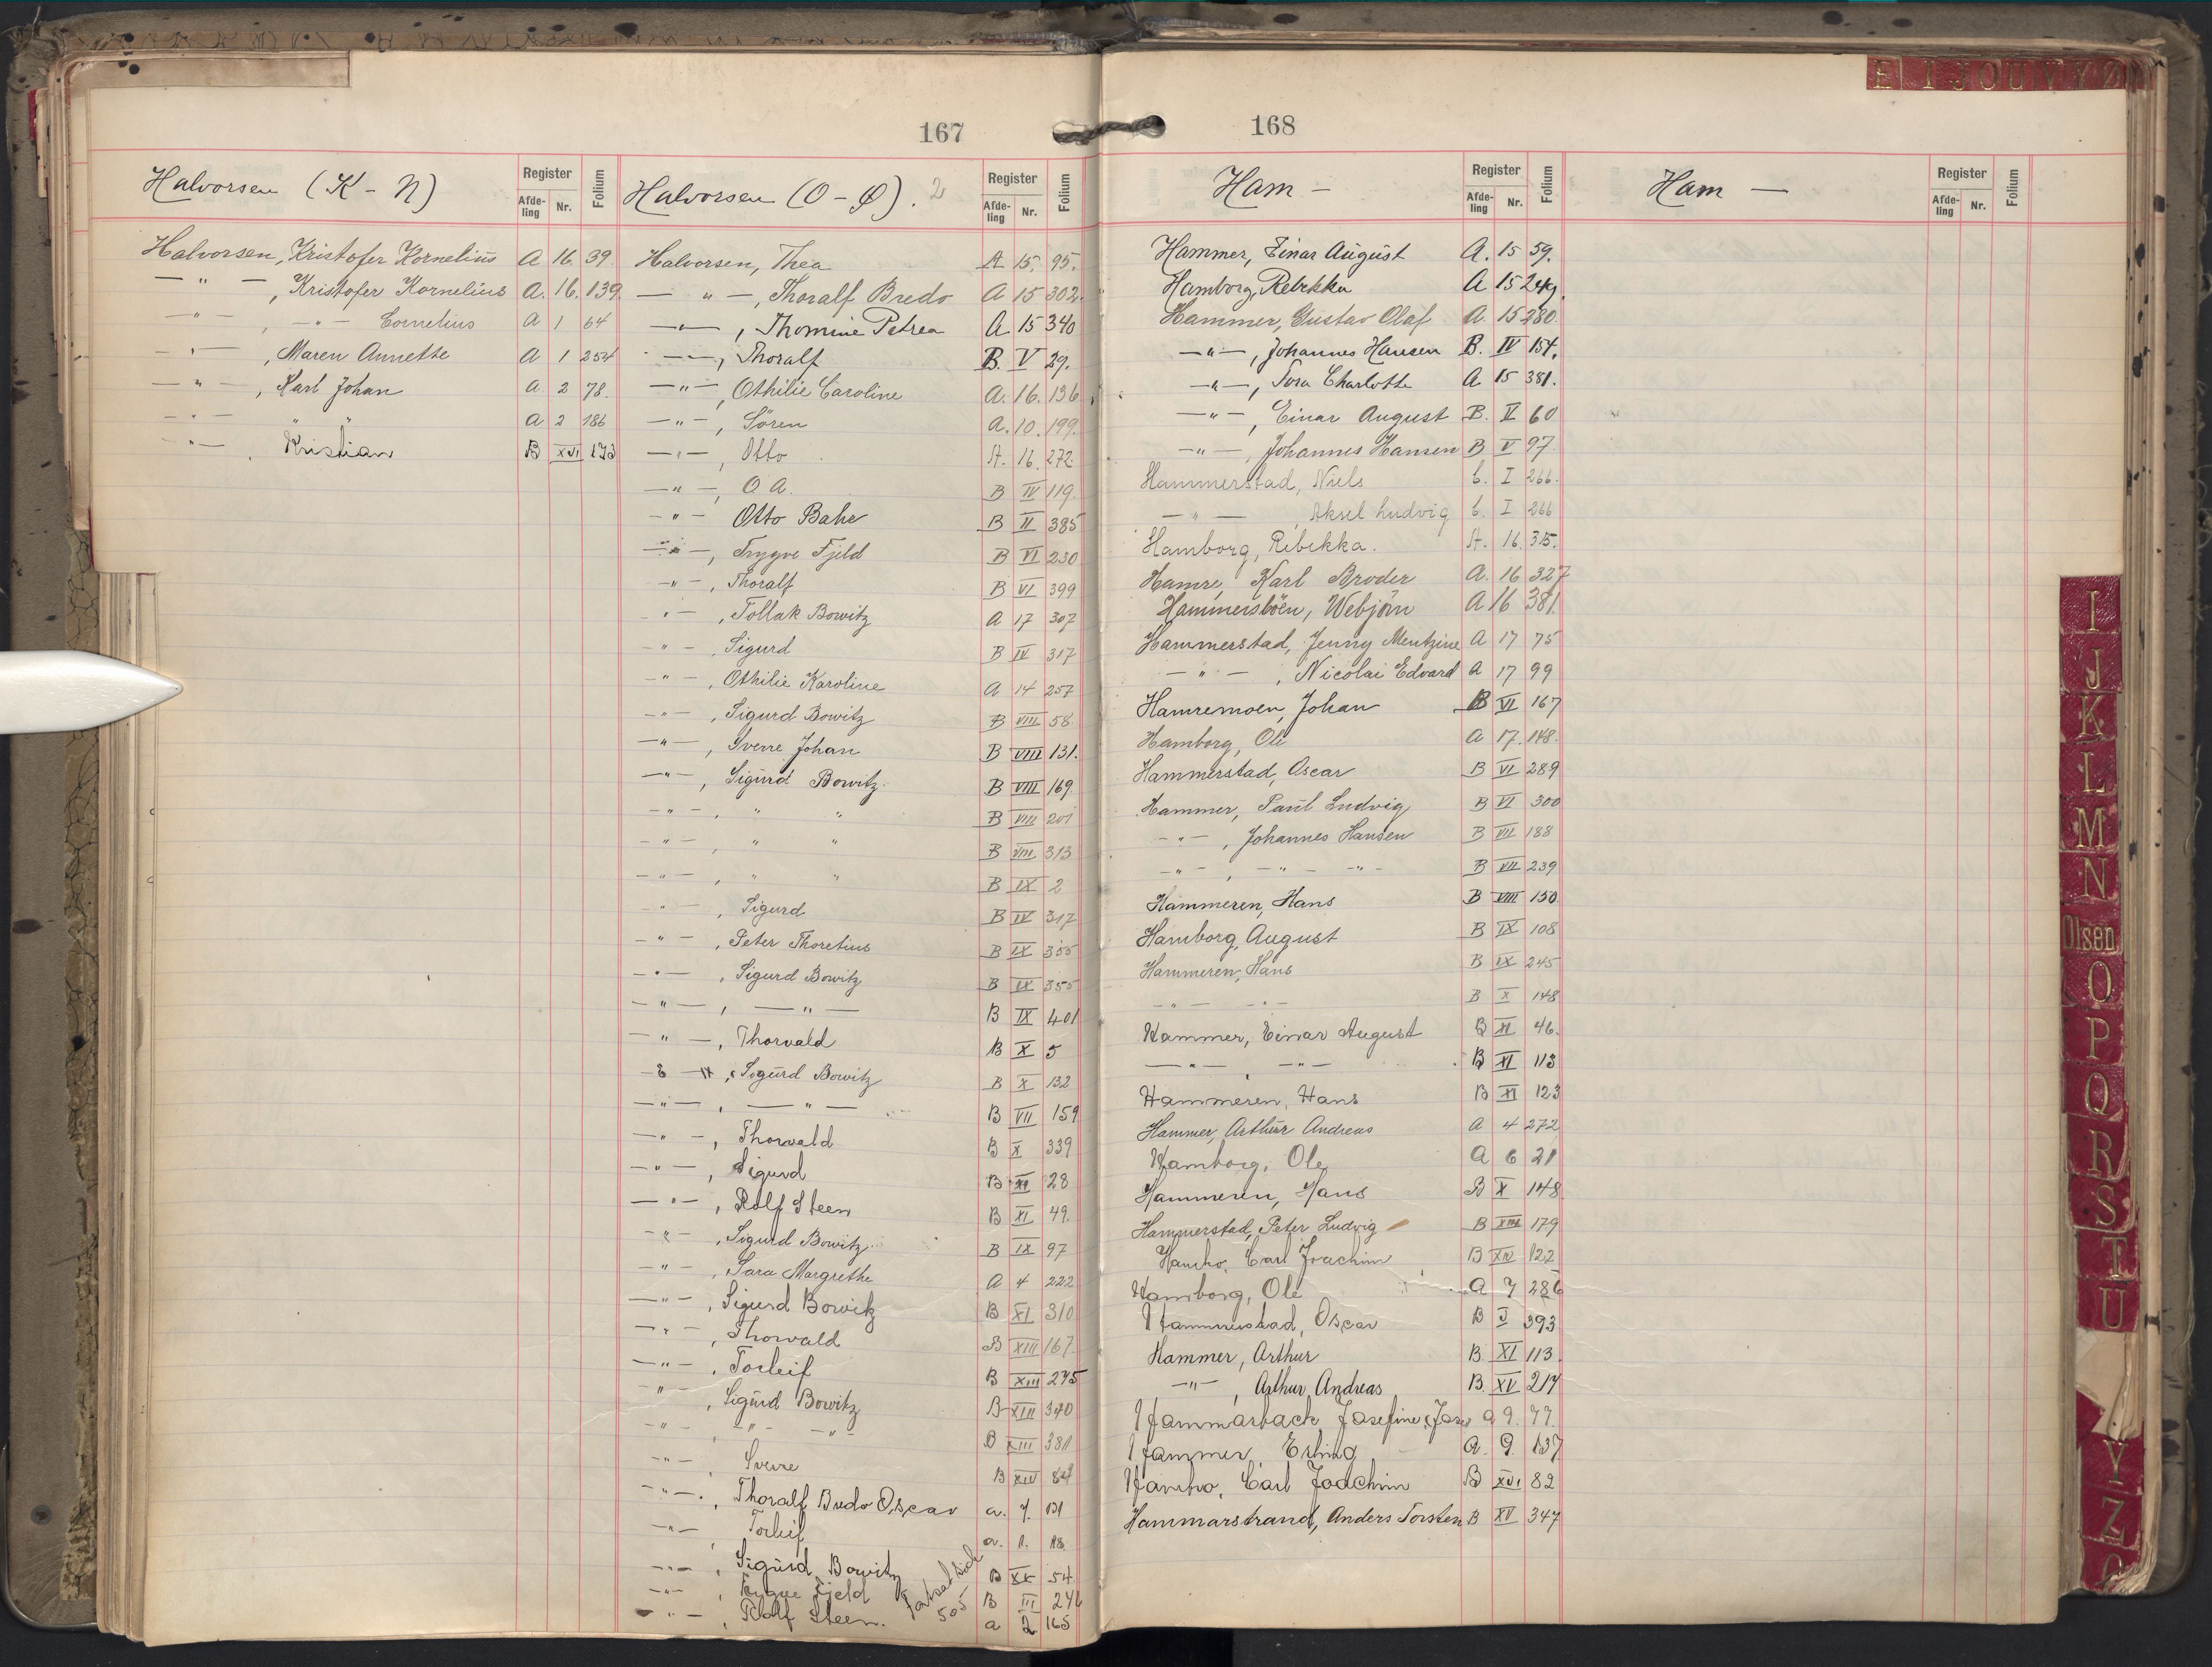 167
Halvorsen (K - N)
Register
Afde-ling Nr. Folium
Halvorsen, Kristofer Kornelius A 16 39
— " — , Kristofer Kornelius A. 16. 139
— " — , — " — Cornelius A 1 64
— " — , Maren Annette A 1 254
— " — , Karl Johan A 2 78.
— " — " " A 2 186
— " — , Kristian B XVI 173
Halvorsen (O - Ø). 2
Register
Afde-ling Nr. Folium
Halvorsen, Thea A 15. 95.
— " — , Thoralf Bredo A 15 302
— " — , Thomine Petrea A. 15 340
— " — , Thoralf B. V 29.
— " — , Othilie Caroline A. 16. 136
— " — , Sören A. 10. 199.
— " — , Otto A. 16. 272
— " — , O. A. B IV 119
— " — Otto Bahr B II 385
— " — , Trygve Fjeld B VI 230
— " — , Thoralf B VI 399
— " — , Tollak Bowitz A 17 307
— " — , Sigurd B IV 317
— " — , Othilie Karoline A 14 257
— " — , Sigurd Bowitz B VIII 58
— " — , Sverre Johan B VIII 131.
— " — , Sigurd Bowitz B VIII 169
— " — , " " B VIII 201
— " — , " " B VIII 313
— " — , " " B IX 2
— " — , Sigurd B IV 317
— " — , Peter Thoretius B IX 355
— " — , Sigurd Bowitz B IX 355
— " — , — " — B IX 401
— " — , Thorvald B X 5
— " — , Sigurd Bowitz B X 132
— " — , — " — B VII 159
— " — , Thorvald B X 339
— " — , Sigurd B XI 28
— " — , Rolf Steen B XI 49.
— " — , Sigurd Bowitz B IX 97
— " — , Sara Margrethe A 4 222
— " — , Sigurd Bowitz B XI 310
— " — , Thorvald B XIII 167
— " — , Torleif B XIII 275
— " — , Sigurd Bowitz B XIII 340
— " — , — " — — " — B XIII 381
— " — , Sverre B XIV 84
— " — , Thoralf Bredo Oscar a. 7. 131
— " — , Torleif a. 1. 18
— " — , Sigurd Bowitz B XX 54
— " — , Trygve Fjeld B III 246
— " — , Rolf Steen. a 2 165
505
168
Ham —
Register
Afde-ling Nr. Folium
Hammer, Einar August A. 15 59.
Hamborg, Rebekka A 15 249.
Hammer, Gustav Olaf A. 15 280.
— " — , Johannes Hansen B. IV 154.
— " — , Tora Charlotte A. 15 381.
— " — , Einar August B. V 60
— " — , Johannes Hansen B V 97.
Hammerstad, Niels b. I 266.
— " — , Aksel Ludvig b. I 266
Hamborg, Ribekka. A. 16. 315.
Hamre, Karl Broder A. 16 327
Hammersböen, Webjörn A 16 381
Hammerstad, Jenny Mentzine A 17 75
— " — , Nicolai Edvard A 17 99
Hamremoen, Johan B VI 167
Hamborg, Ole A 17. 148.
Hammerstad, Oscar B VI 289
Hammer, Paul Ludvig B VI 300
— " — , Johannes Hansen B VII 188
— " — , — " — — " — B VII 239
Hammeren, Hans B VIII 150
Hamborg, August B IX 108
Hammeren, Hans B IX 245
— " — — " — B X 148
Hammer, Einar August B XI 46.
— " — , — " — B XI 113
Hammeren, Hans B XI 123
Hammer, Arthur Andreas A 4 272
Hamborg, Ole A 6 21
Hammeren, Hans B X 148
Hammerstad, Peter Ludvig B XIII 179
Hamho, Carl Joachim B XV 122
Hamborg, Ole A 7 286
Hammerstad, Oscar B I 393
Hammer, Arthur B. XI 113
— " — , Arthur Andreas B. XV 217
Hammarback Josefine a 9. 77.
Hammer, Erling a. 9. 137
Hamho, Carl Joachim B XVI 82
Hammarstrand, Anders Torsten B XV 347
Ham —
Register
Afde-ling Nr. Folium
E I J O U V Y Ø
I
J
K
L
M
N
Olsen
O
P
Q
R
S
T
U
Y
Z